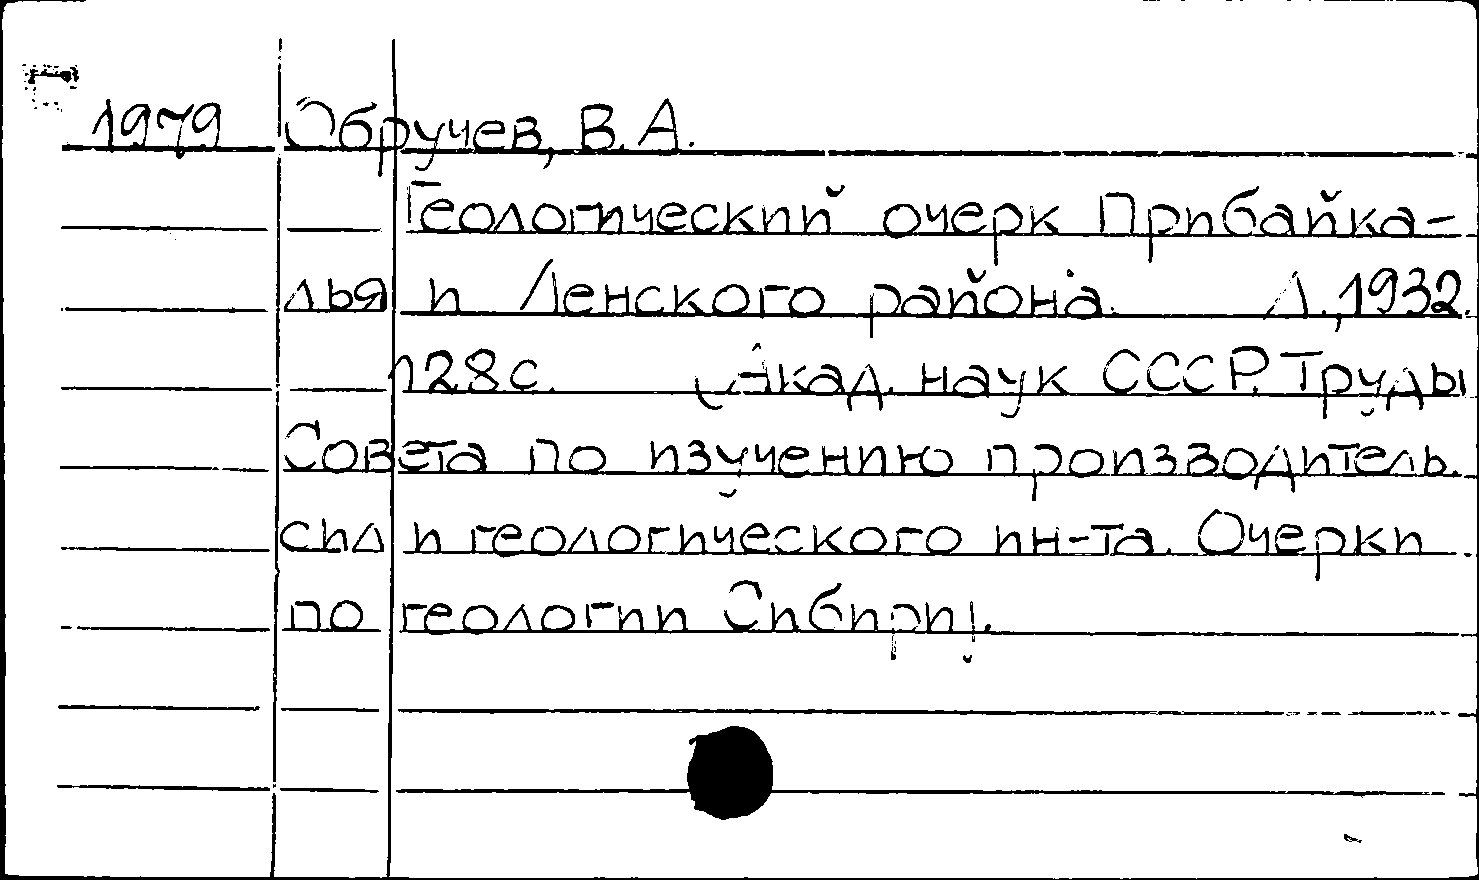 1979 Обручев, В.А.
Геологический очерк Прибайка-
лья и Ленского района. Л., 1932.
128с. (Акад. наук СССР. Труды
Совета по изучению производитель.
сил и геологического ин-та. Очерки
по геологии Сибири).